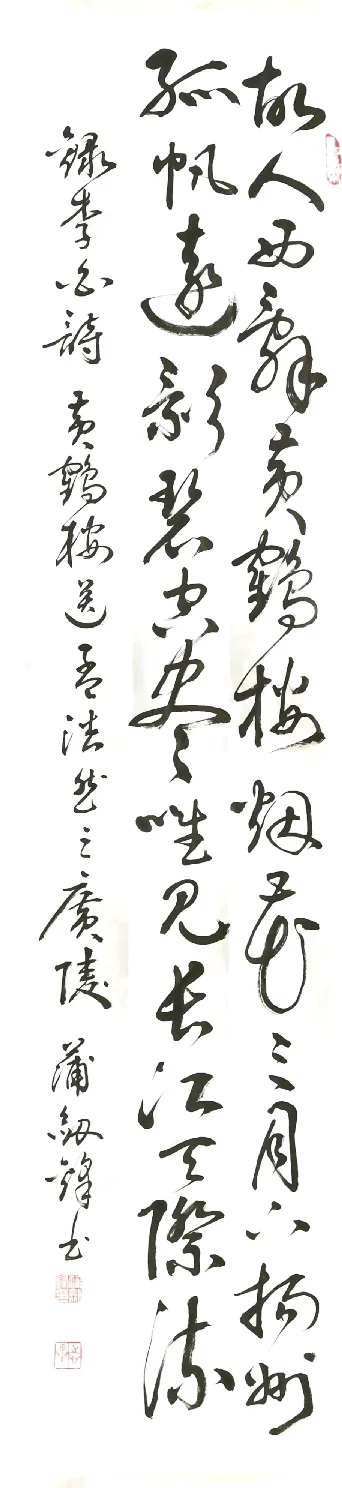 故人西辭黄鶴樓烟花三月下揚州
孤帆遠影碧空盡唯見長江天際流
録李白詩 黄鶴樓送孟浩然之廣陵 蒲劍鋒書